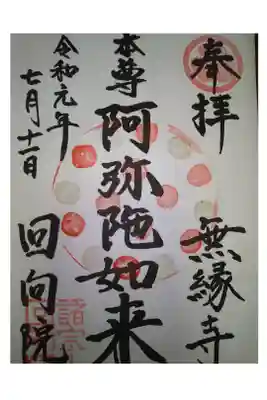 奉拝
無縁寺
本尊
阿弥陀如来
令和元年
七月十一日
回向院